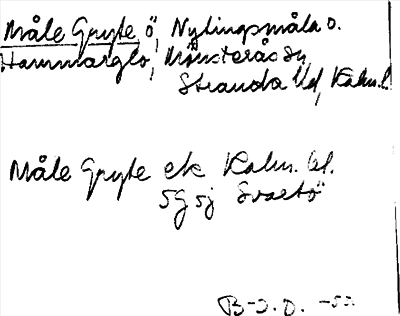 Måle Gryte ö, Nylingsmåla o.
Hammarglo, Mönsterås sn,
Stranda hd, Kalm. l.
Måle Gryte ek Kalm. bl.
5G 5j Svartö
B-J.O. -53